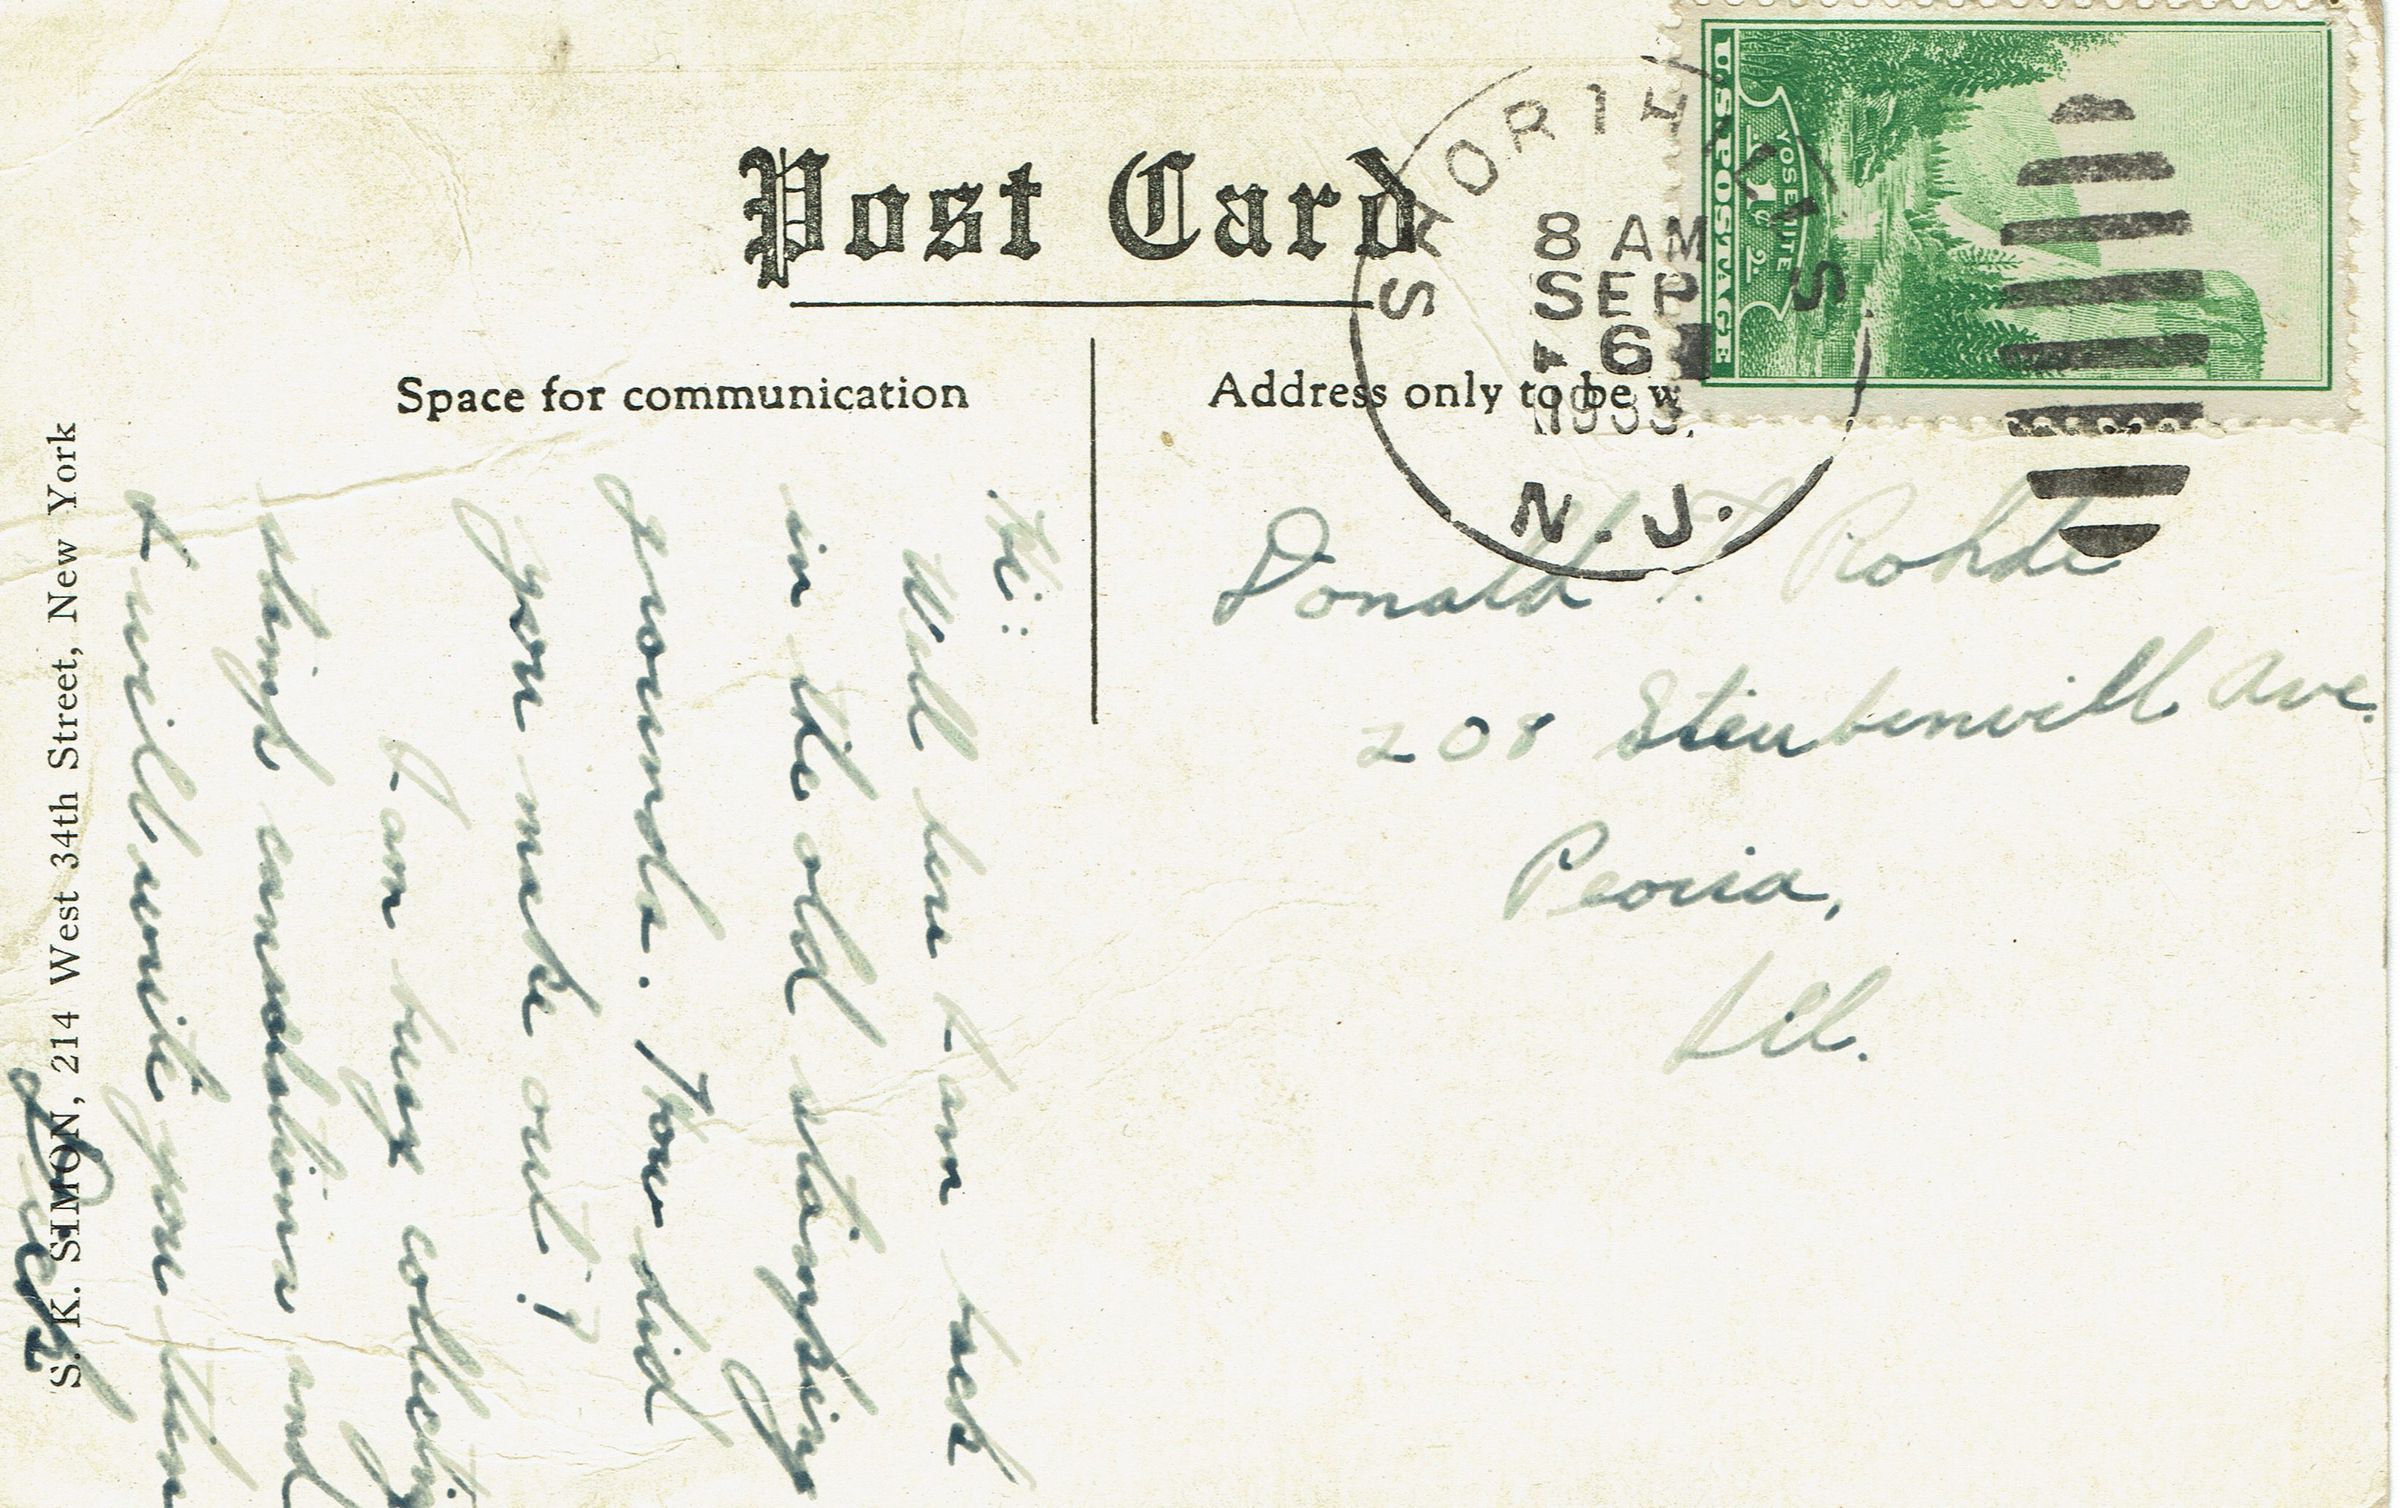 Post Card
Space for communication
Address only to be w
SHORT HILLS
8 AM
SEP
6
N.J.
U.S. POSTAGE
YOSEMITE
1¢
Donald F. Rohde
208 Steubenvill Ave.
Peoria,
Ill.
Hi:
Well here I am back
in the old stamping
grounds. How did
you make out?
I am busy collecting
stings and
I will write you then
Dick
S. K. SIMON, 214 West 34th Street, New York